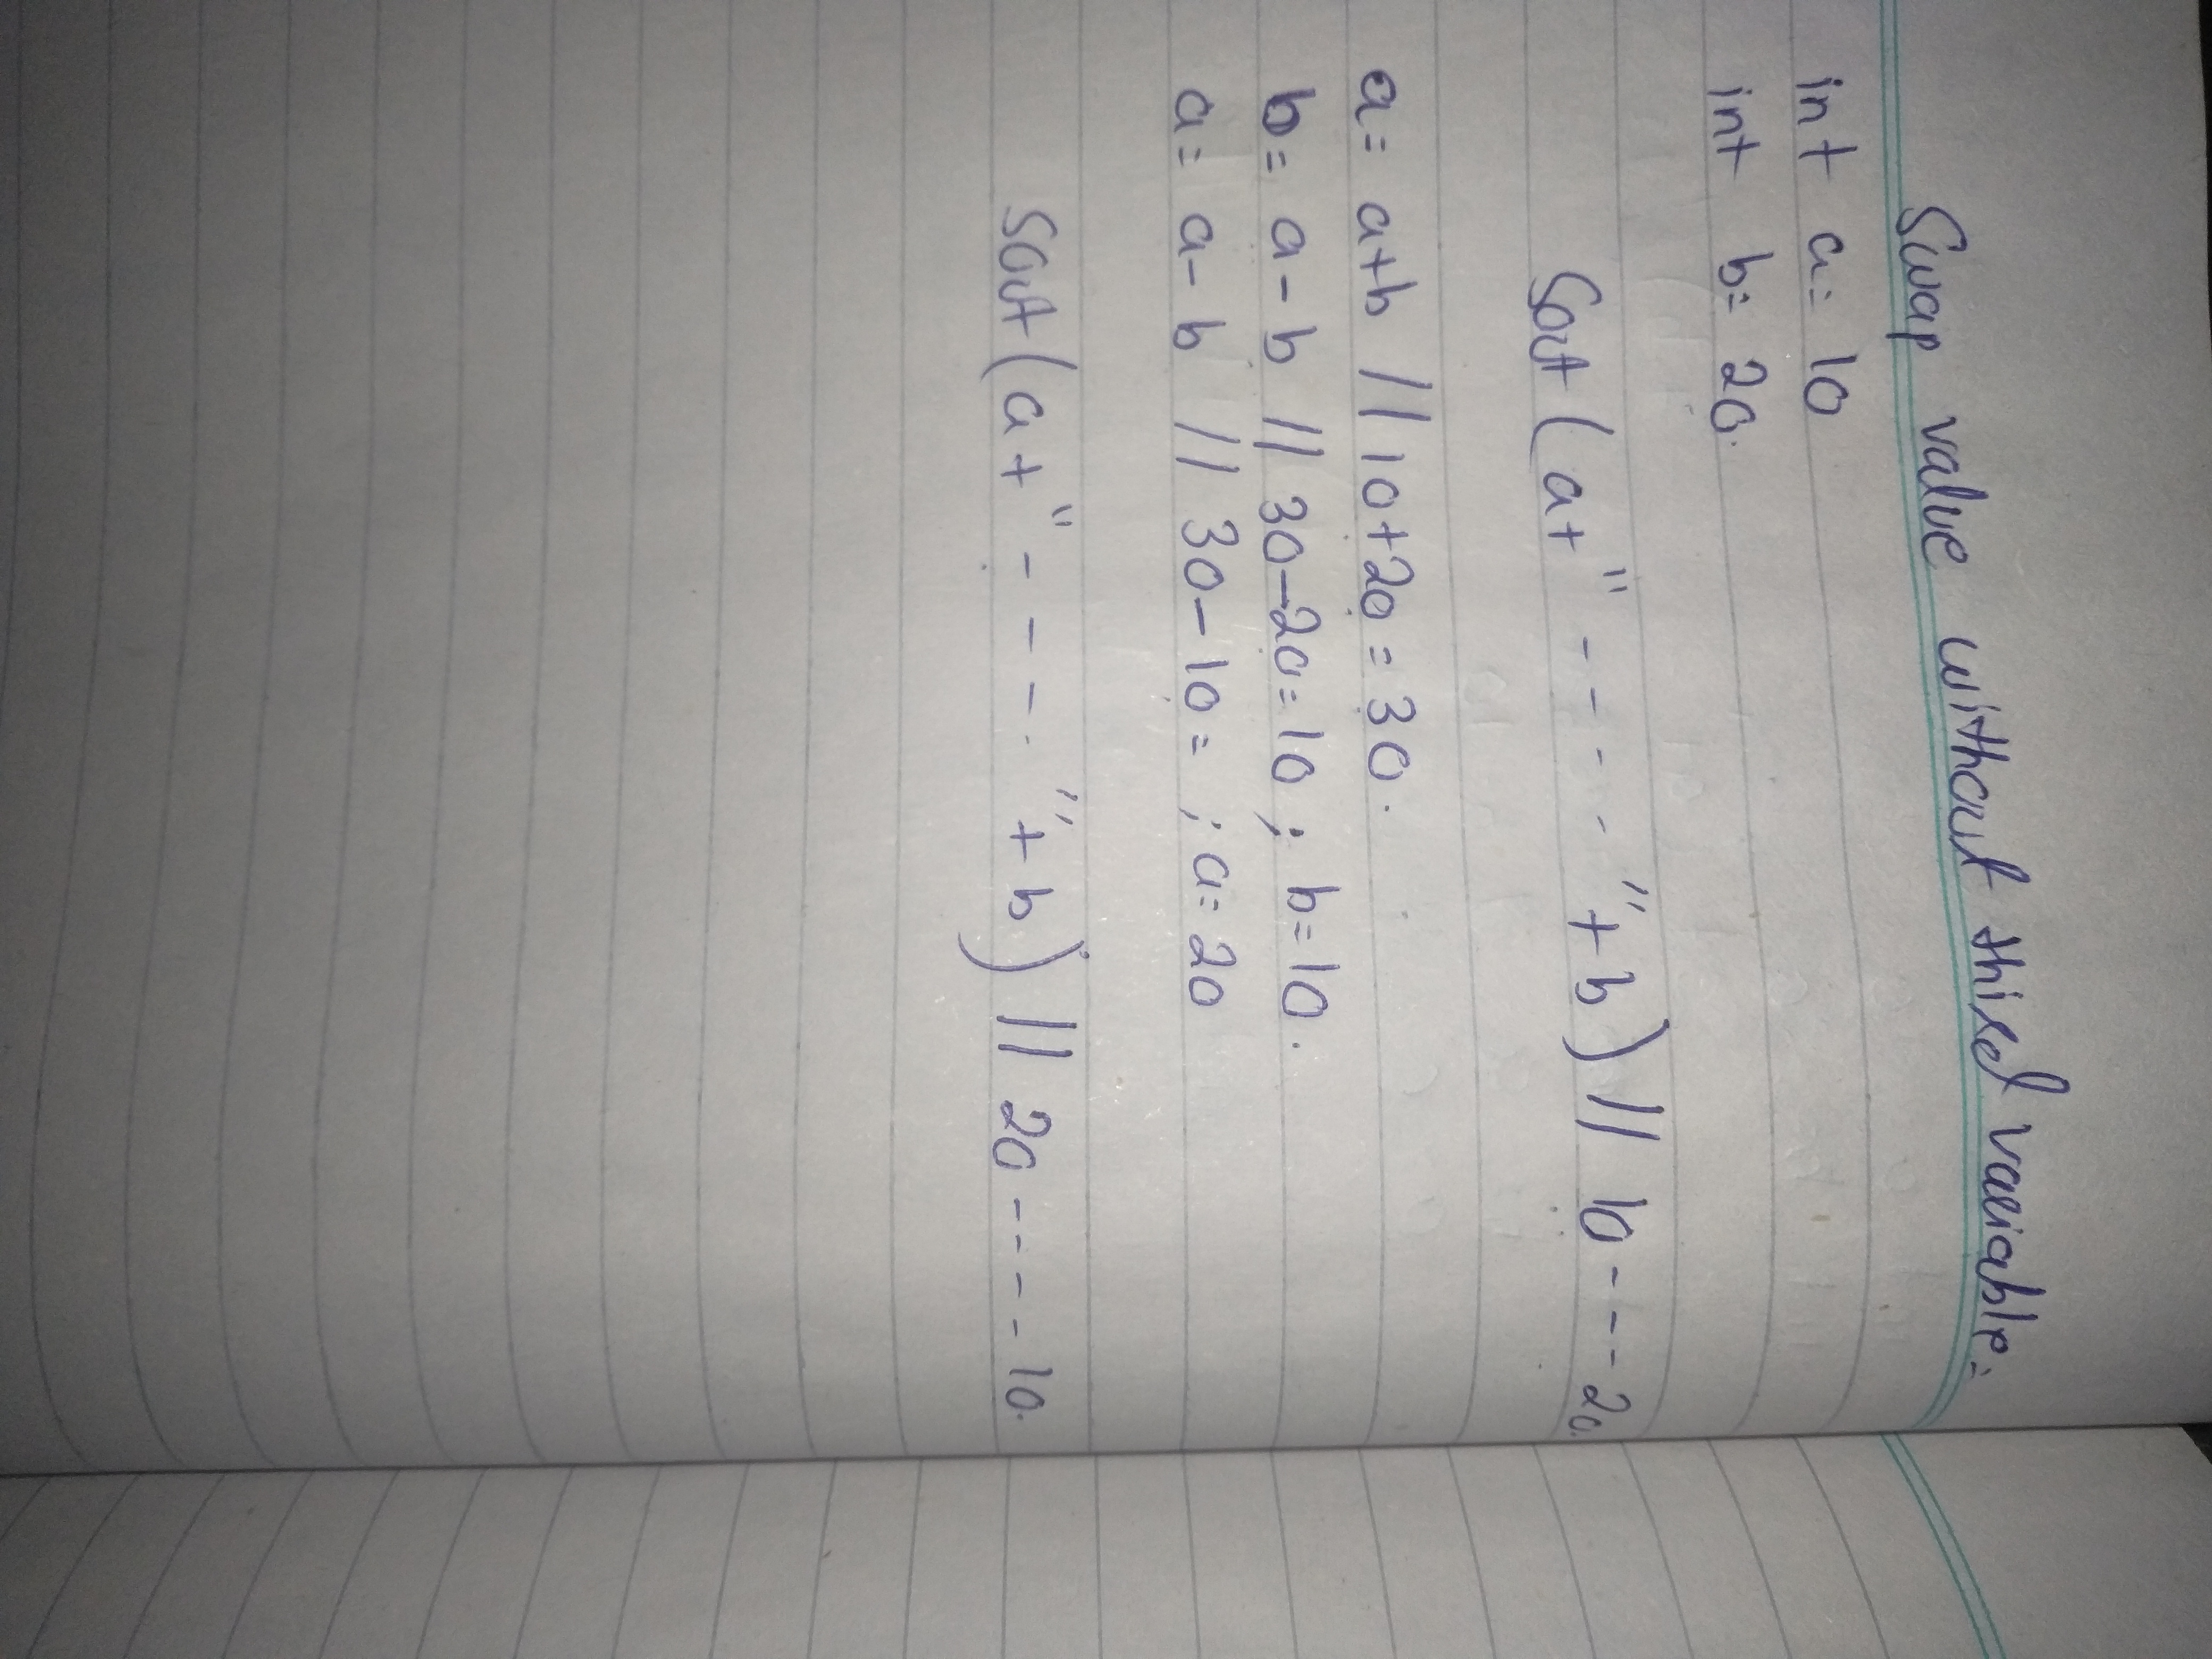 Swap value without third variable:
int a= 10
int b= 20.
Sout (a+ "----"+b) // 10---20.
a= a+b // 10+20=30.
b= a-b // 30-20=10 ; b=10.
a= a-b // 30-10= ; a=20
Sout (a+ "---."+b) // 20----10.